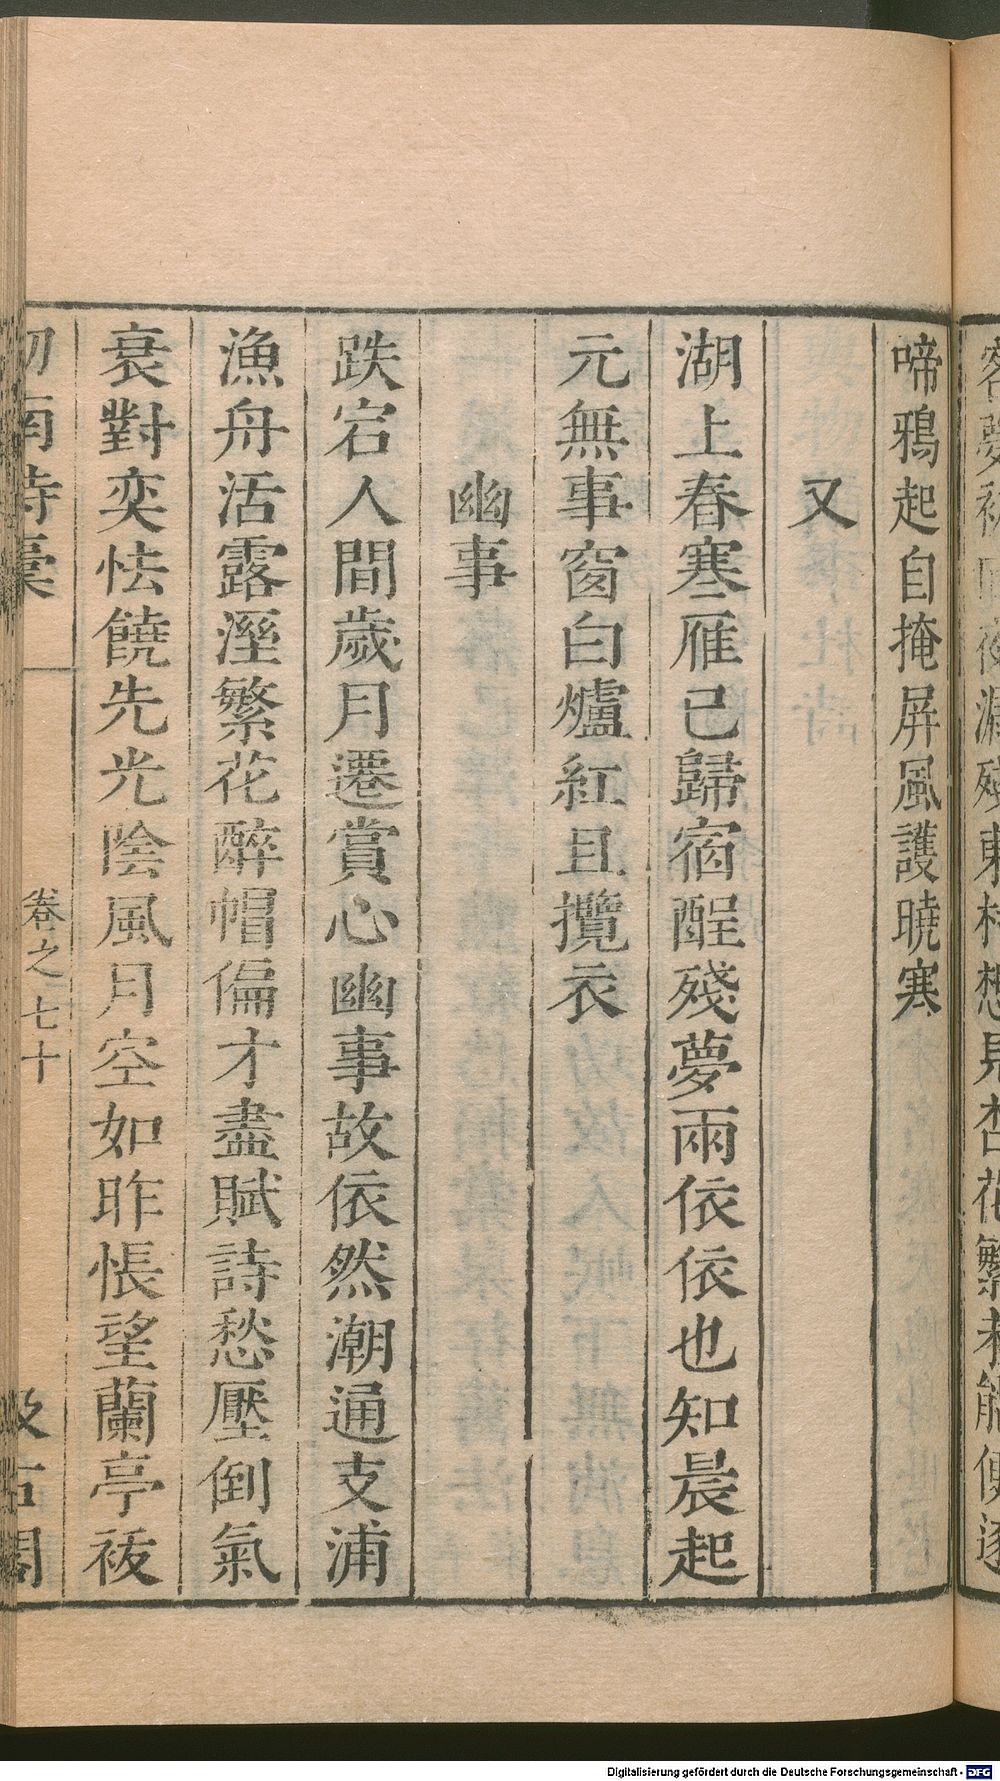 客夢初回夜漏殘東村想見杏花繁未能便逐
啼鴉起自掩屏風護曉寒
又
湖上春寒雁已歸宿酲殘夢兩依依也知晨起
元無事窗白爐紅且攬衣
幽事
跌宕人間歲月遷賞心幽事故依然潮通支浦
漁舟活露溼繁花醉帽偏才盡賦詩愁壓倒氣
衰對奕怯饒先光陰風月空如昨悵望蘭亭祓
劒南詩稾 卷之七十 汲古閣
Digitalisierung gefördert durch die Deutsche Forschungsgemeinschaft - DFG